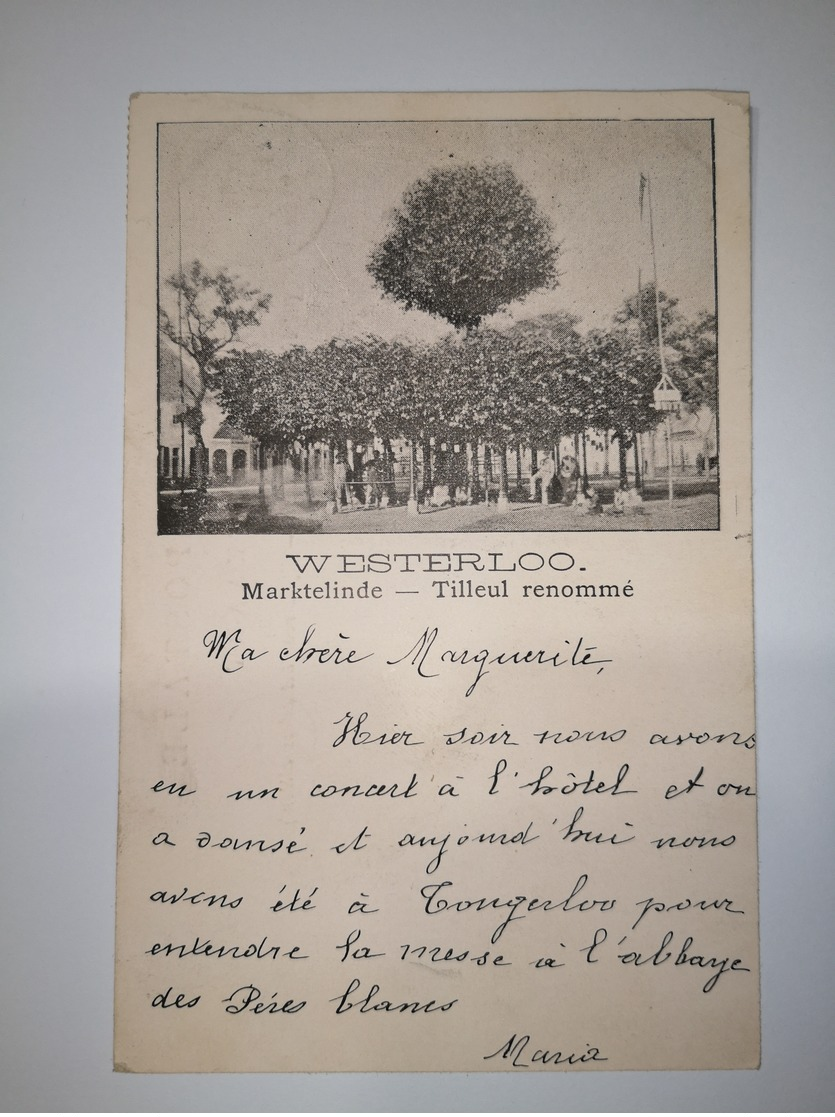 WESTERLOO.
Marktelinde — Tilleul renommé
Ma chère Marguerite,
Hier soir nous avons
eu un concert à l'hôtel et on
a dansé et aujourd'hui nous
avons été à Tongerloo pour
entendre la messe à l'abbaye
des Péres blancs
Maria